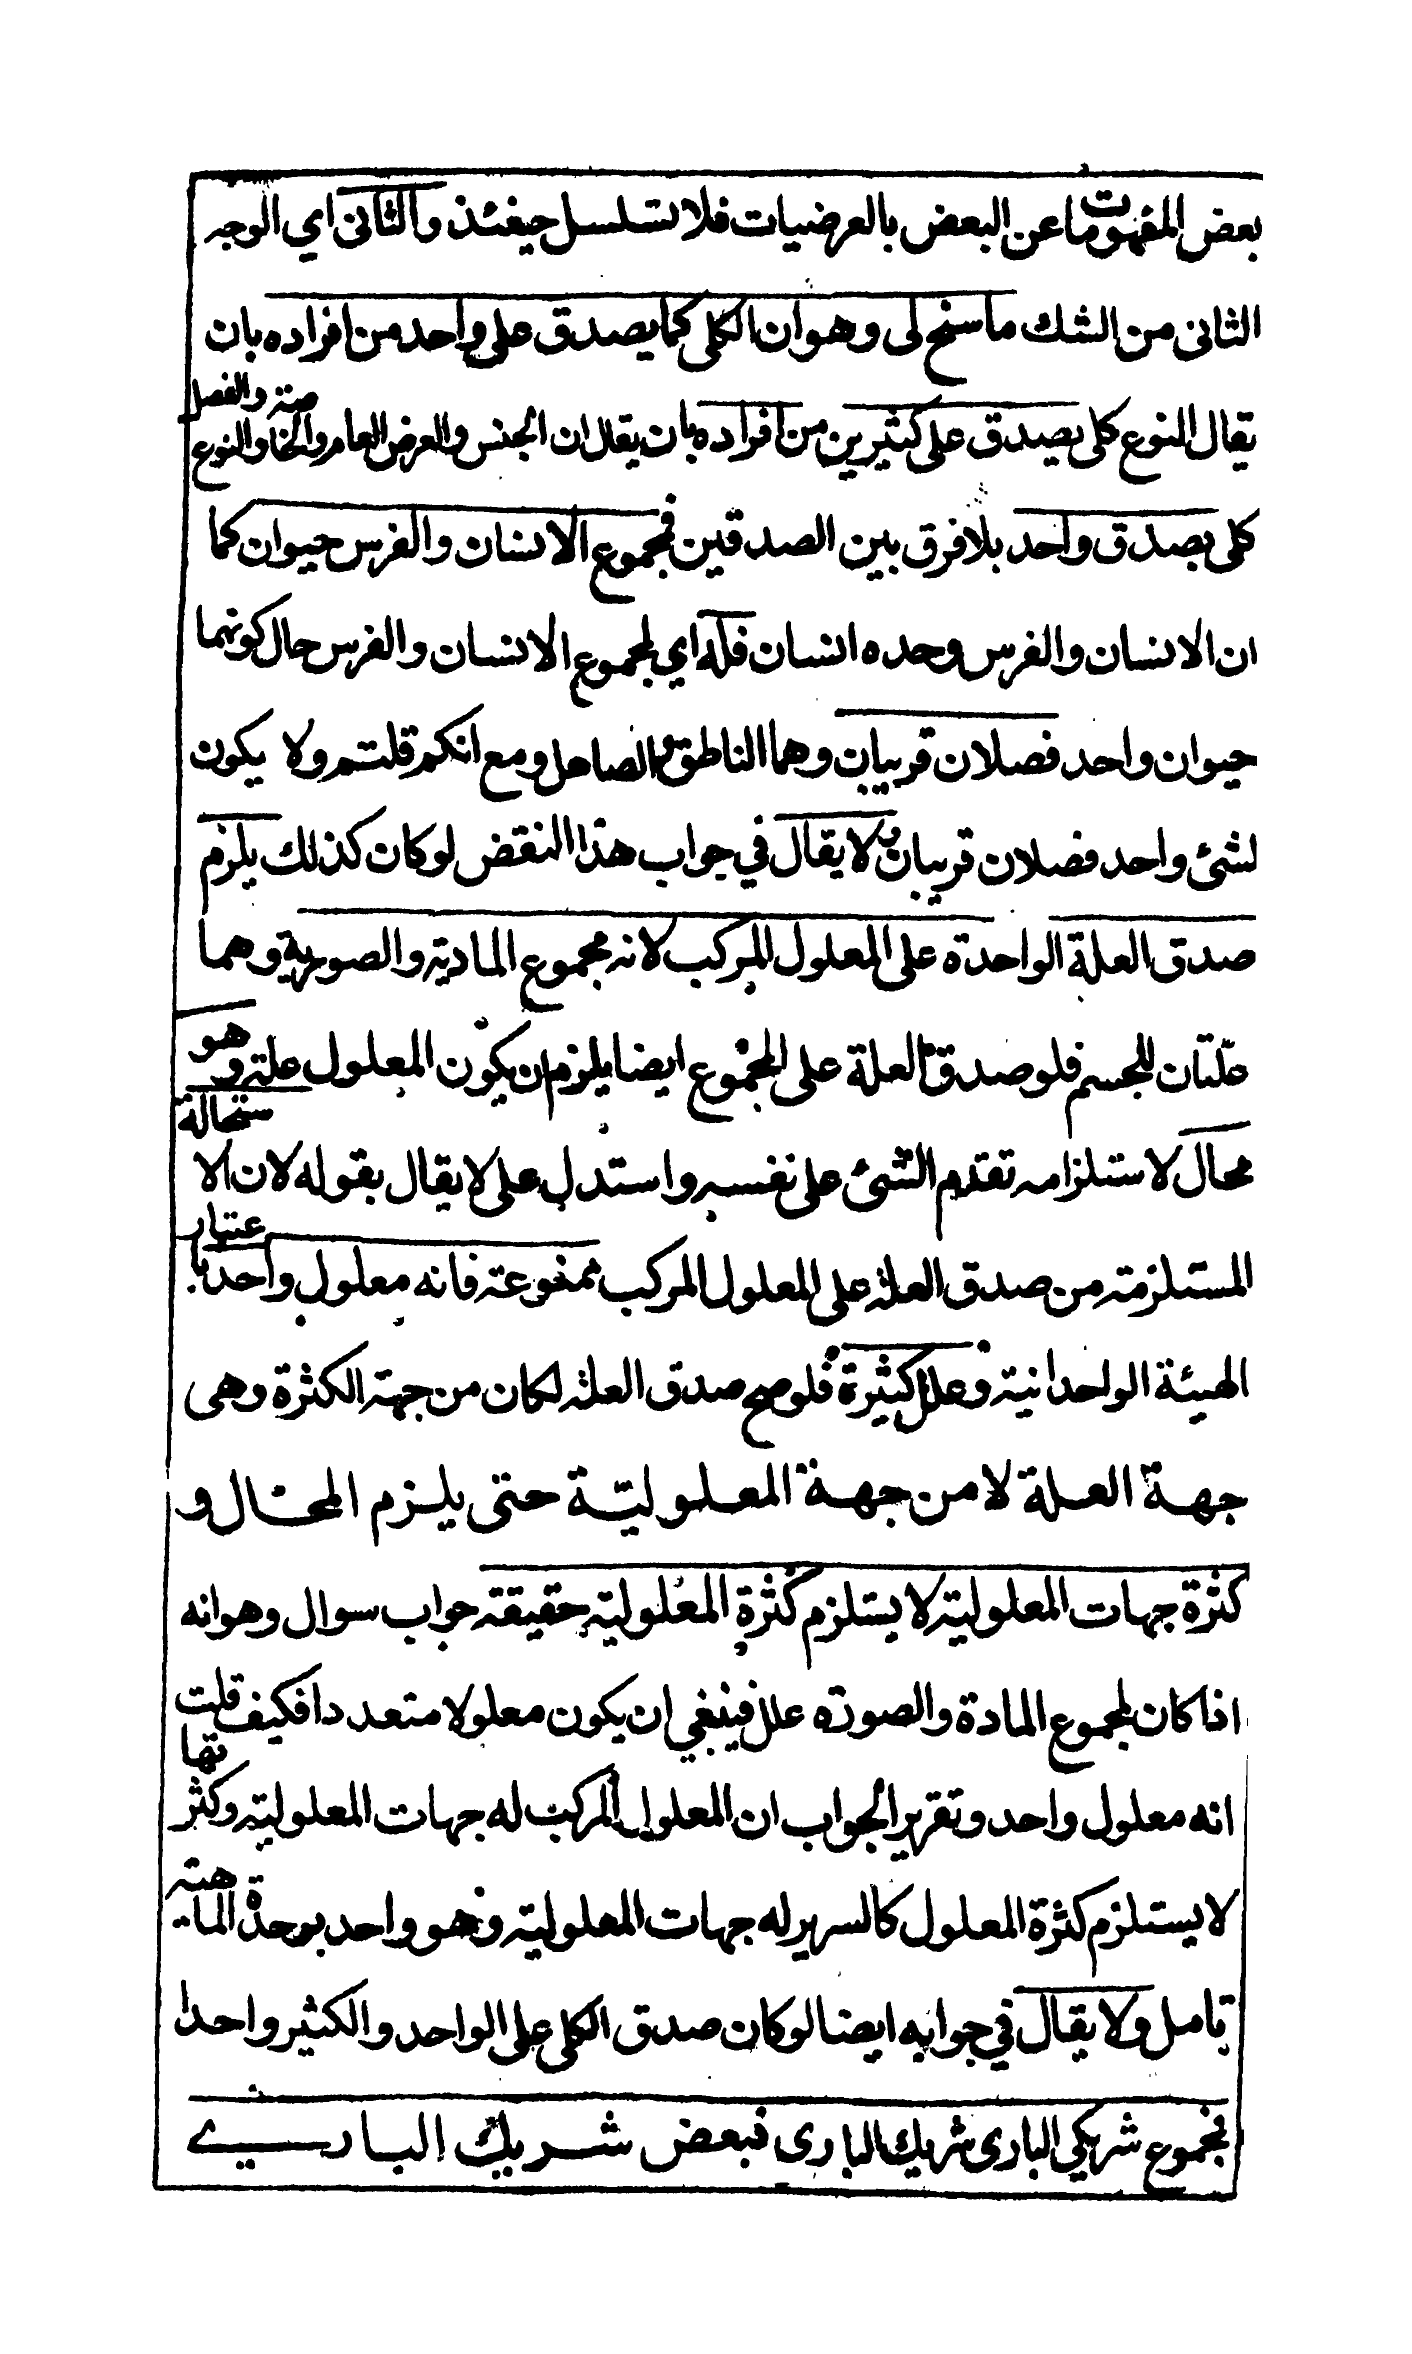 بعض المفهومات عن البعض بالعرضيات فلا تسلسل حينئذ والثاني اي الوجه
الثاني من الشك ما سنح لي وهو ان الكلي كما يصدق على واحد من افراده بان
يقال النوع كلي يصدق على كثيرين من افراده بان يقال ان الجنس والعرض العام والخاصة والفصل والنوع
كلي يصدق واحد بلا فرق بين الصدقين فمجموع الانسان والفرس حيوان كما
ان الانسان والفرس وحده انسان فله اي لمجموع الانسان والفرس حال كونهما
حيوان واحد فصلان قريبان وهما الناطق والصاهل ومع انكم قلتم ولا يكون
لشئ واحد فصلان قريبان ولا يقال في جواب هذا النقض لو كان كذلك يلزم
صدق العلة الواحدة على المعلول المركب لانه مجموع المادية والصورية وهما
علتان للجسم فلو صدق العلة على المجموع ايضا يلزم ان يكون المعلول علة وهو
محال لاستلزامه تقدم الشئ على نفسه واستدل على لا يقال بقوله لان الاستحالة
المستلزمة من صدق العلة على المعلول المركب ممنوعة فانه معلول واحد باعتبار
الهيئة الواحدانية وعلل كثيرة فلو صح صدق العلة لكان من جهة الكثرة وهي
جهة العلة لا من جهة المعلولية حتى يلزم المحال و
كثرة جهات المعلولية لا يستلزم كثرة المعلولية حقيقة جواب سوال وهو انه
اذا كان لمجموع المادة والصورة علل فينبغي ان يكون معلولا متعددا فكيف قلت
انه معلول واحد وتقرير الجواب ان المعلول المركب له جهات المعلولية وكثرتها
لا يستلزم كثرة المعلول كالسرير له جهات المعلولية وهو واحد بوحدة الماهية
تامل ولا يقال في جوابه ايضا لو كان صدق الكلي على الواحد والكثير واحدا
فمجموع شريكي الباري شريك الباري فبعض شريك الباري